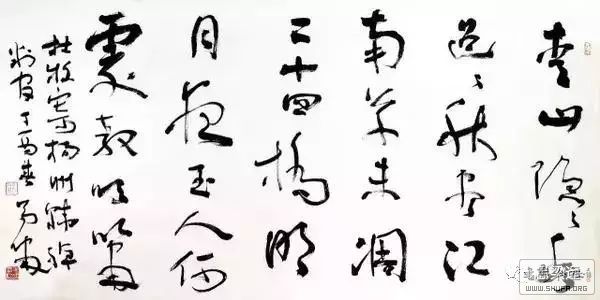 青山隐々水
迢々秋尽江
南草未凋
二十四橋明
月夜玉人何
處教吹箫
杜牧寄楊州韓綽
判官丁酉春
WWW.SHUFA.ORG